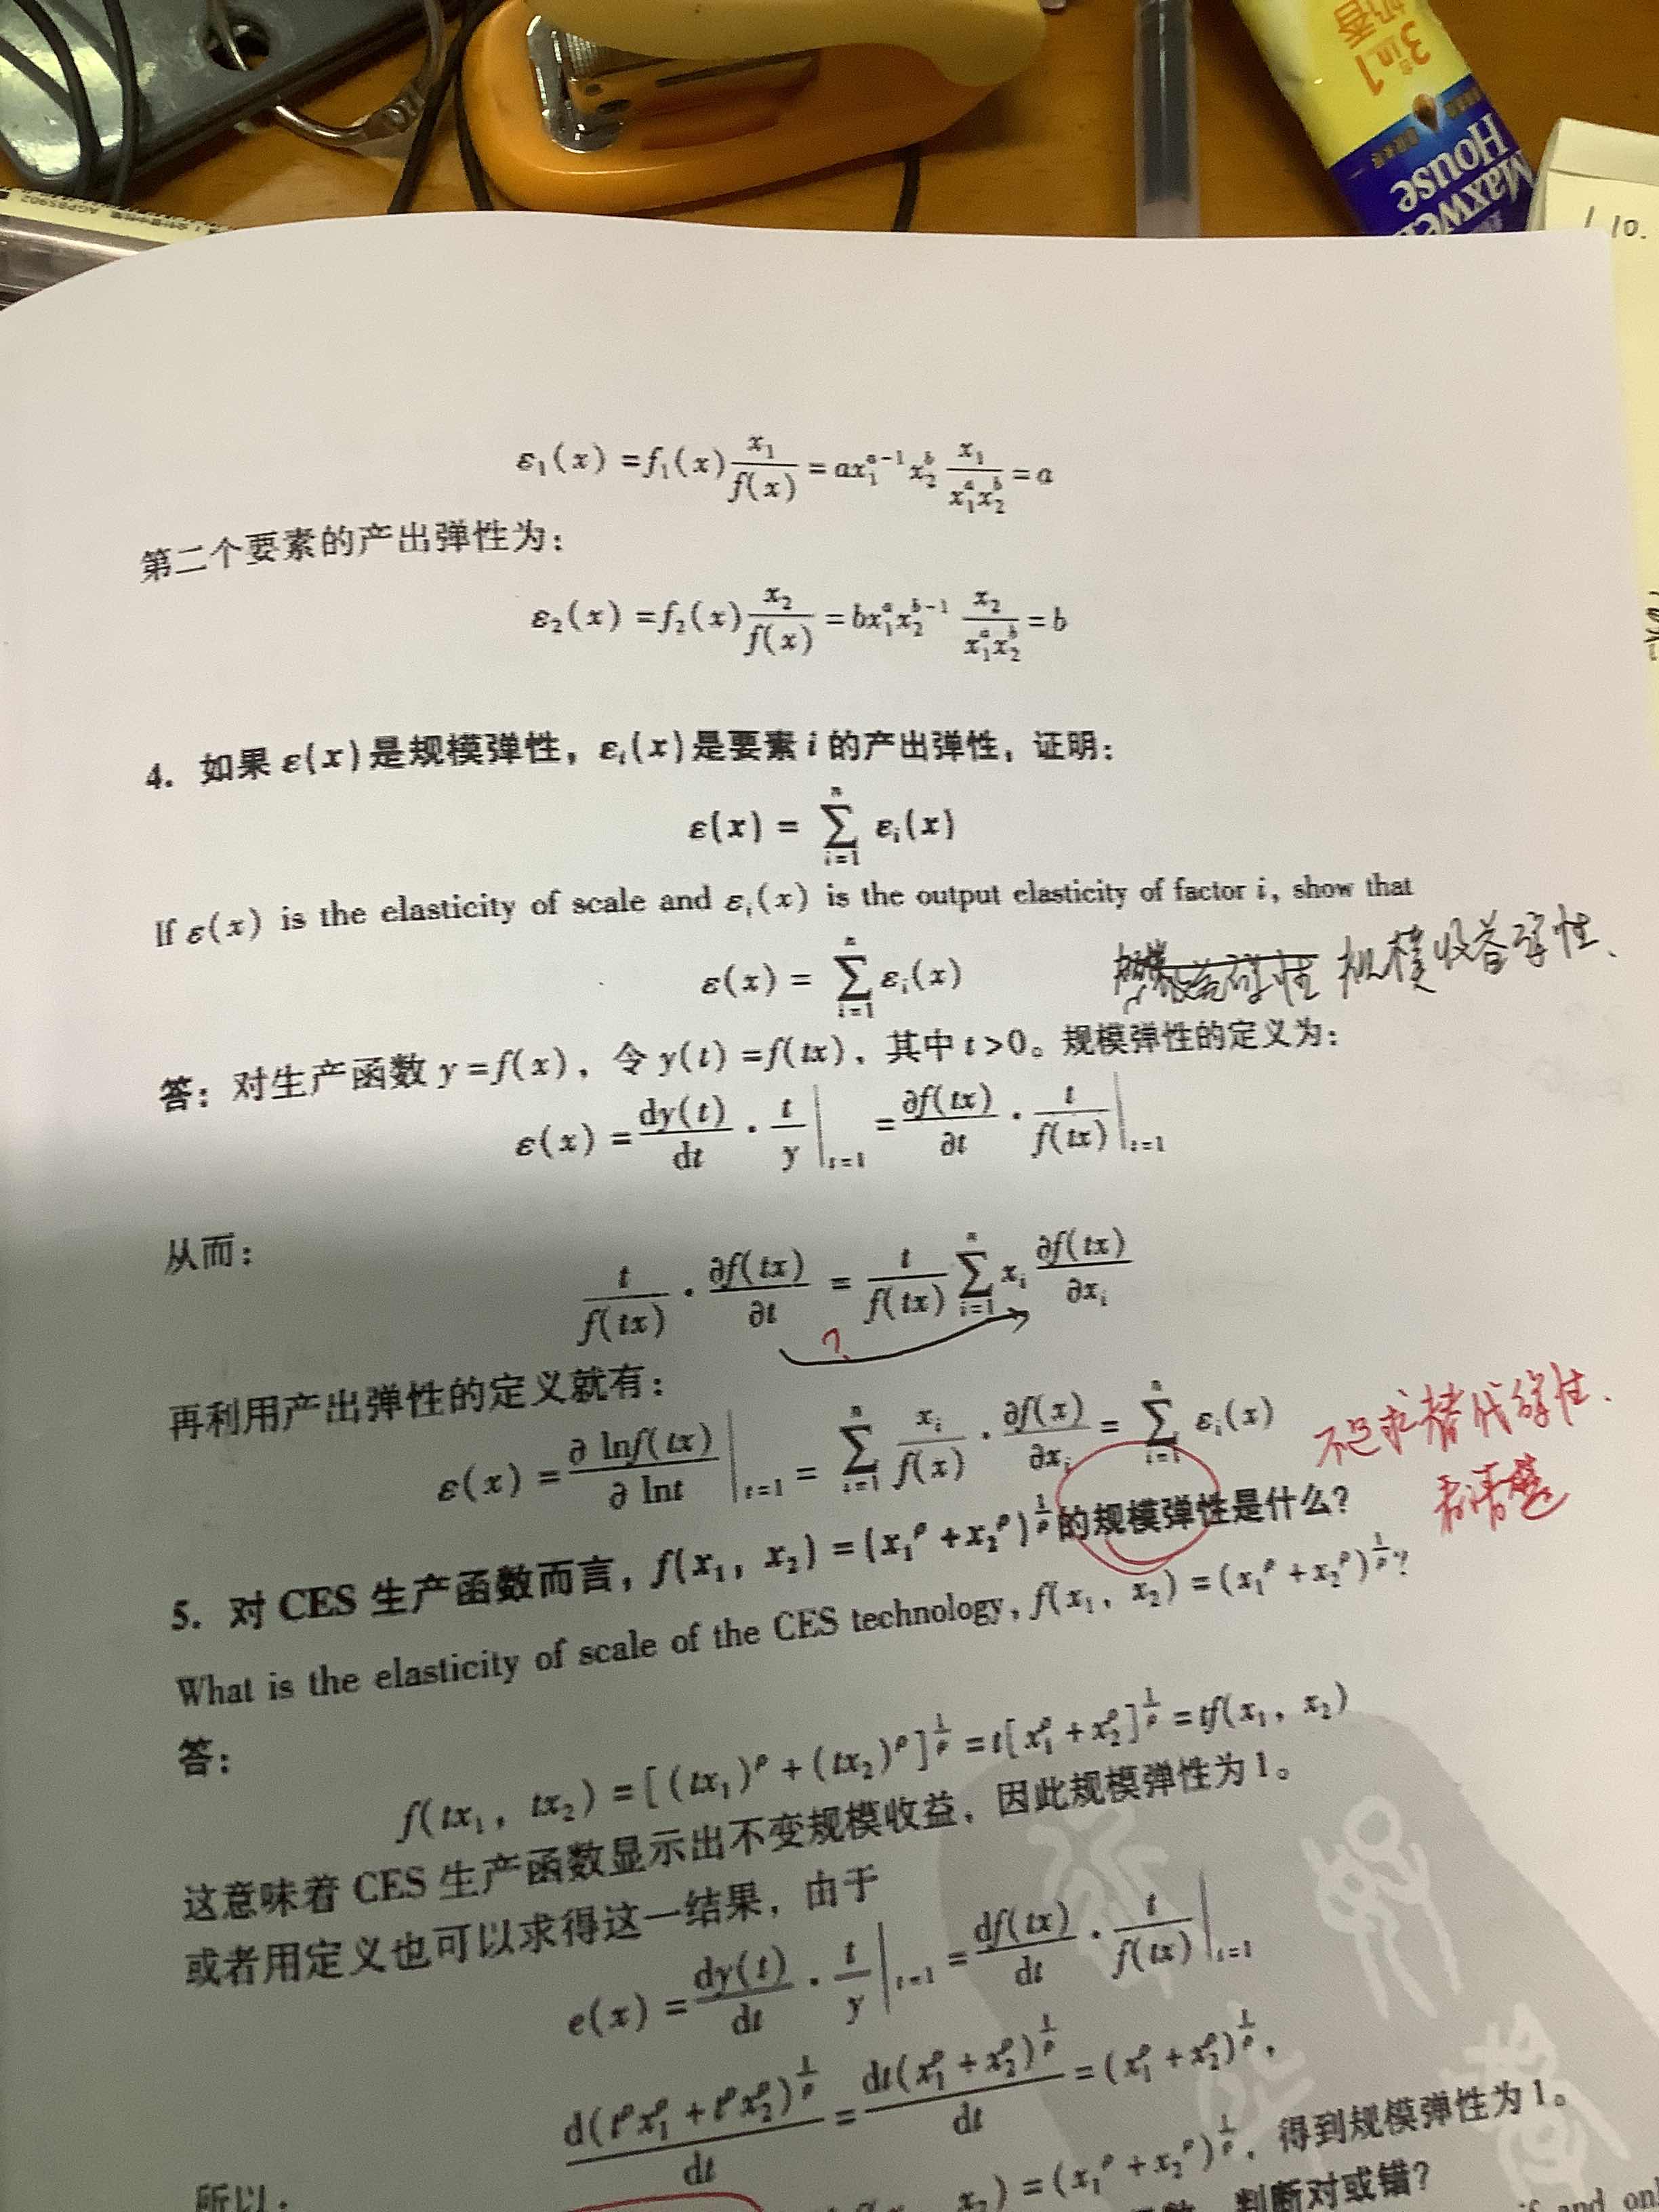 3合1
in
奶香
Maxwell
House
1.10.
ε₁(x) = f₁(x) x₁/f(x) = ax₁^{a-1}x₂^b x₁/(x₁^a x₂^b) = a
第二个要素的产出弹性为：
ε₂(x) = f₂(x) x₂/f(x) = bx₁^a x₂^{b-1} x₂/(x₁^a x₂^b) = b
4. 如果 ε(x)是规模弹性，εᵢ(x)是要素 i 的产出弹性，证明：
ε(x) = ∑_{i=1}^{n} εᵢ(x)
If ε(x) is the elasticity of scale and εᵢ(x) is the output elasticity of factor i, show that
ε(x) = ∑_{i=1}^{n} εᵢ(x)
规模收益弹性、
答：对生产函数 y=f(x)，令 y(t)=f(tx)，其中 t>0。规模弹性的定义为：
ε(x) = dy(t)/dt · t/y |_{t=1} = ∂f(tx)/∂t · t/f(tx) |_{t=1}
从而：
t/f(tx) · ∂f(tx)/∂t = t/f(tx) ∑_{i=1}^{n} xᵢ ∂f(tx)/∂xᵢ
?
再利用产出弹性的定义就有：
ε(x) = ∂ lnf(tx)/∂ lnt |_{t=1} = ∑_{i=1}^{n} xᵢ/f(x) · ∂f(x)/∂xᵢ = ∑_{i=1}^{n} εᵢ(x)
不是求替代弹性.
看清楚
5. 对 CES 生产函数而言，f(x₁, x₂) = (x₁^ρ + x₂^ρ)^{1/ρ}的规模弹性是什么？
What is the elasticity of scale of the CES technology, f(x₁, x₂) = (x₁^ρ + x₂^ρ)^{1/ρ}?
答：
f(tx₁, tx₂) = [(tx₁)^ρ + (tx₂)^ρ]^{1/ρ} = t[x₁^ρ + x₂^ρ]^{1/ρ} = tf(x₁, x₂)
这意味着 CES 生产函数显示出不变规模收益，因此规模弹性为 1。
或者用定义也可以求得这一结果，由于
e(x) = dy(t)/dt · t/y |_{t=1} = df(tx)/dt · t/f(tx) |_{t=1}
d(t^ρ x₁^ρ + t^ρ x₂^ρ)^{1/ρ}/dt = dt(x₁^ρ + x₂^ρ)^{1/ρ}/dt = (x₁^ρ + x₂^ρ)^{1/ρ}，
所以：
x₂) = (x₁^ρ + x₂^ρ)^{1/ρ}，得到规模弹性为 1。
判断对或错？
and